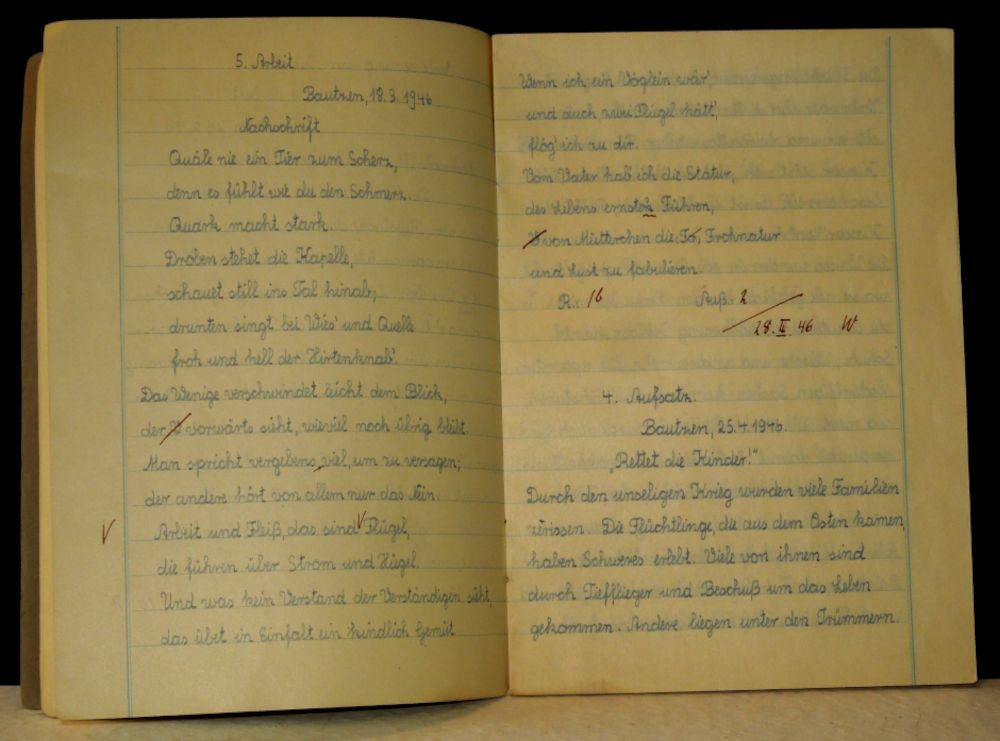 5. Arbeit
Bautzen, 18.3.1946
Nachschrift
Quäle nie ein Tier zum Scherz,
denn es fühlt wie du den Schmerz.
Quark macht stark.
Droben stehet die Kapelle,
schauet still ins Tal hinab;
drunten singt bei Wies' und Quelle
froh und hell der Hirtenknab'.
Das Wenige verschwindet leicht dem Blick,
der vorwärts sieht, wieviel noch übrig bleibt.
Man spricht vergebens viel, um zu versagen;
der andere hört von allem nur das Nein.
Arbeit und Fleiß, das sind Flügel,
die führen über Strom und Hügel.
Und was kein Verstand der Verständigen sieht,
das übet in Einfalt ein kindlich Gemüt
Wenn ich ein Vöglein wär'
und auch zwei Flügel hätt',
flög' ich zu dir.
Vom Vater hab' ich die Statur,
des Lebens ernstes Führen,
von Mütterchen die Frohnatur
und Lust zu fabulieren.
R. 16 Auß. 2
28. III. 46 W
4. Aufsatz.
Bautzen, 25.4.1946.
„Rettet die Kinder!"
Durch den unseligen Krieg wurden viele Familien
zerissen. Die Flüchtlinge, die aus dem Osten kamen,
haben Schweres erlebt. Viele von ihnen sind
durch Tiefflieger und Beschuß um das Leben
gekommen. Andere liegen unter den Trümmern.